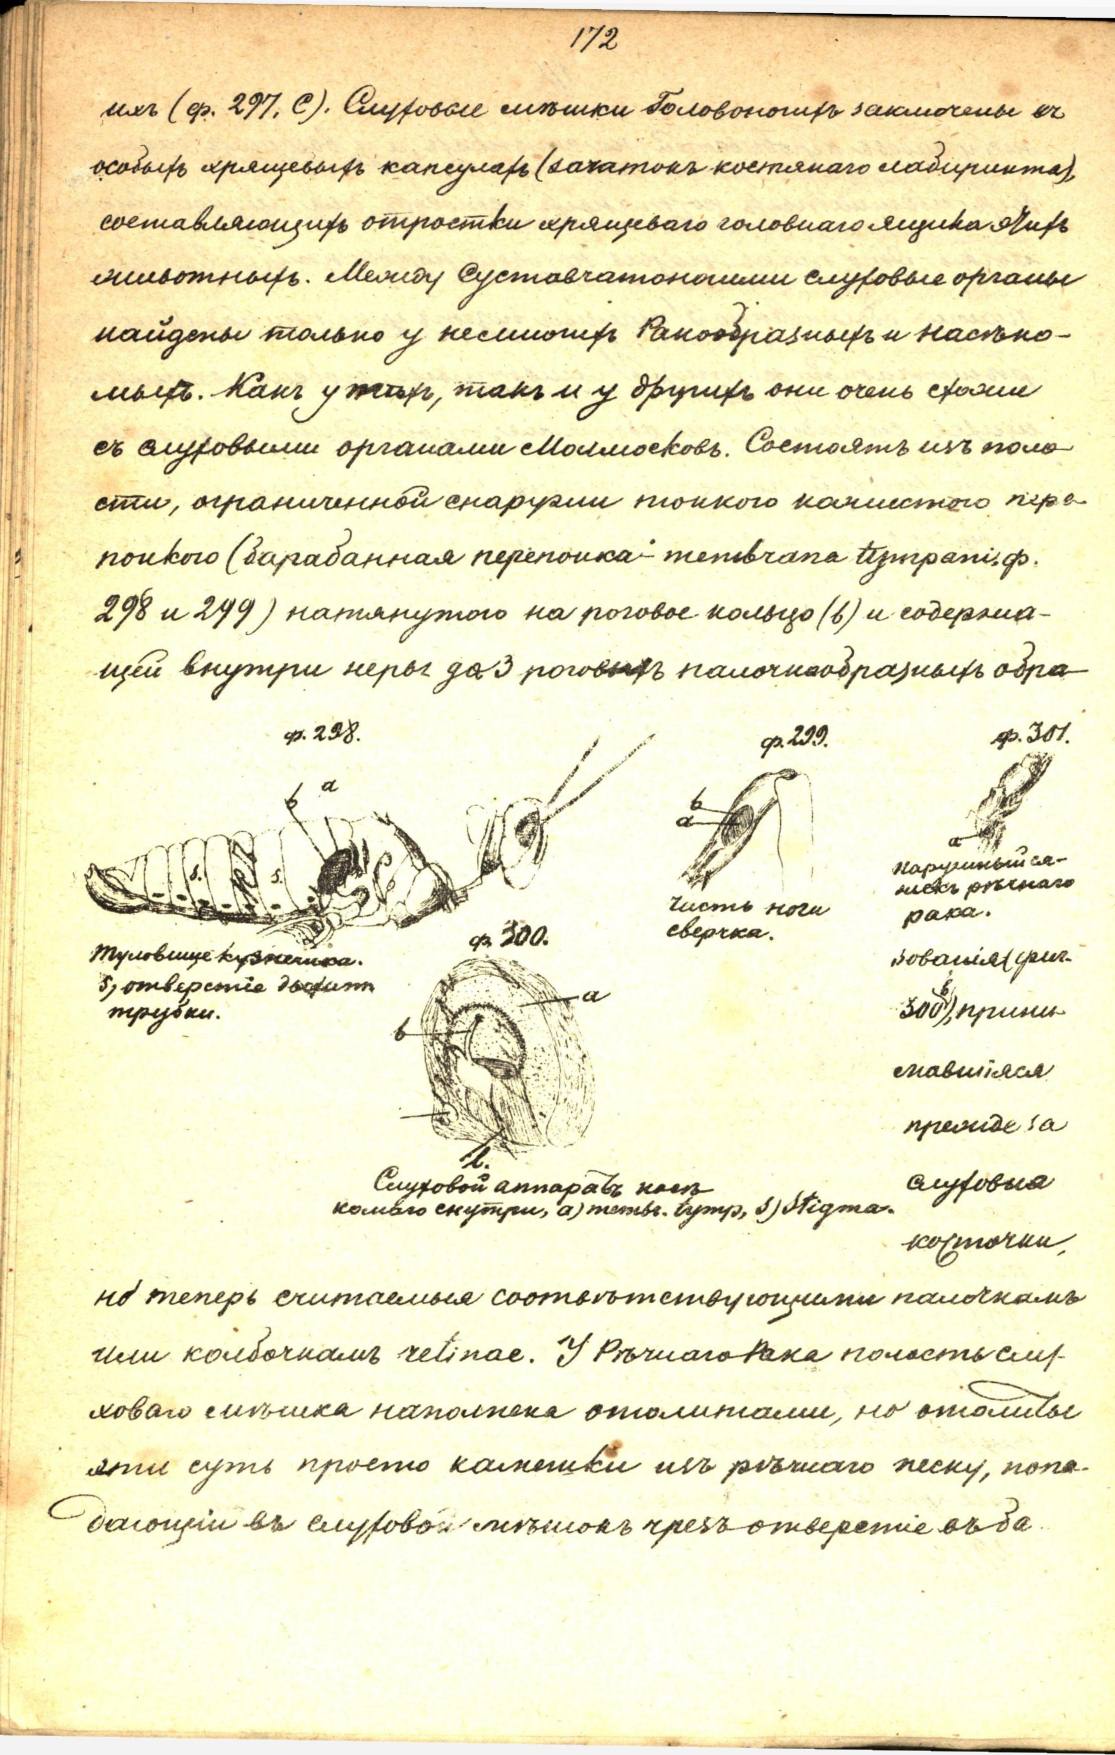 172
ихъ (ф. 297, С). Слуховые мѣшки Головоногихъ заключены въ
особыхъ хрящевыхъ капсулахъ (зачатокъ костянаго лабиринта),
составляющихъ отростки хрящеваго головнаго ящика этихъ
животныхъ. Между Суставчатоногими слуховые органы
найдены только у немногихъ Ракообразныхъ и насѣко-
мыхъ. Какъ у тѣхъ, такъ и у другихъ они очень схожи
съ слуховыми органами Моллюсковъ. Состоятъ изъ поло
сти, ограниченной снаружи тонкого кожистого пере-
понкого (барабанная перепонка - membrana tympani, ф.
298 и 299) натянутого на роговое кольцо (b) и содержа-
щей внутри нервы до 3 роговыхъ палочкообразныхъ обра-
ф. 298.
ф. 299.
ф. 301.
b a
b
a
a
s.
s.
Наружный ся-
жекъ рѣчнаго
рака.
Часть ноги
сверчка.
Туловище кузнечика.
s) отверстіе дыхат
трубки.
ф. 300.
a
b
зованія (фиг.
300 b), прини
мавшіяся
прежде за
слуховыя
косточки,
Слуховой аппаратъ насѣ
комаго снутри, a) membr. tymp, s) Stigma.
но теперь считаемыя соотвѣтствующими палочкамъ
или колбочкамъ retinae. У Рѣчнаго Рака полость слу-
ховаго мѣшка наполнена отолитами, но отолиты
эти суть просто камешки изъ рѣчнаго песку, попа-
дающіи въ слуховой мѣшокъ чрезъ отверстіе въ ба